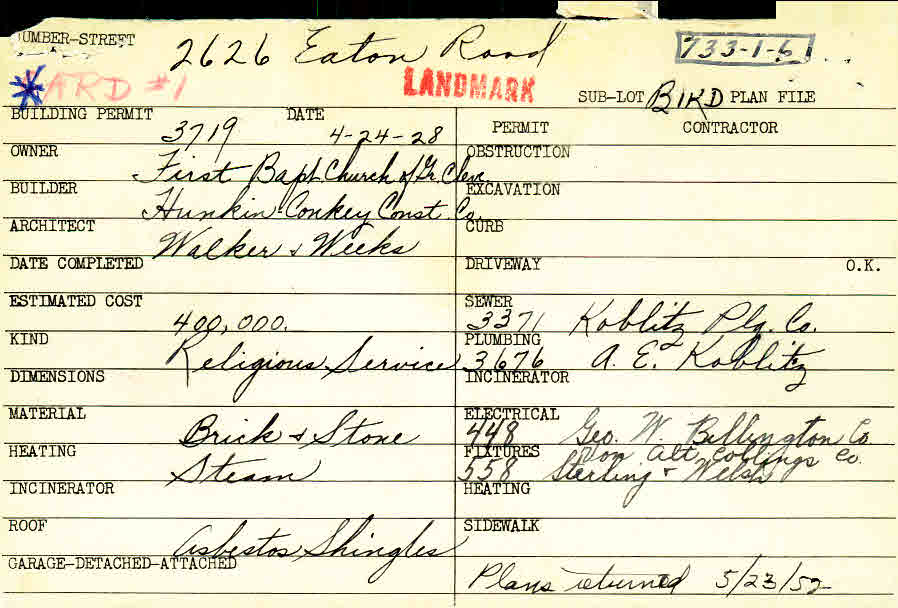 NUMBER-STREET 2626 Eaton Road 733-1-6
WARD #1 LANDMARK SUB-LOT BIRD PLAN FILE
BUILDING PERMIT 3719 DATE 4-24-28
PERMIT CONTRACTOR
OWNER First Bapt. Church of Gr. Cleve.
OBSTRUCTION
BUILDER Hunkin-Conkey Const. Co.
EXCAVATION
ARCHITECT Walker & Weeks
CURB
DATE COMPLETED
DRIVEWAY O.K.
ESTIMATED COST 400,000.
SEWER 3371 Koblitz Plg. Co.
KIND Religious Service
PLUMBING 3676 A. E. Koblitz
DIMENSIONS
INCINERATOR
MATERIAL Brick & Stone
ELECTRICAL 448 Geo. W. Billington Co.
HEATING Steam
FIXTURES 558 Sterling & Welsh
INCINERATOR
HEATING
ROOF Asbestos Shingles
SIDEWALK
GARAGE-DETACHED-ATTACHED
Plans returned 5/23/52